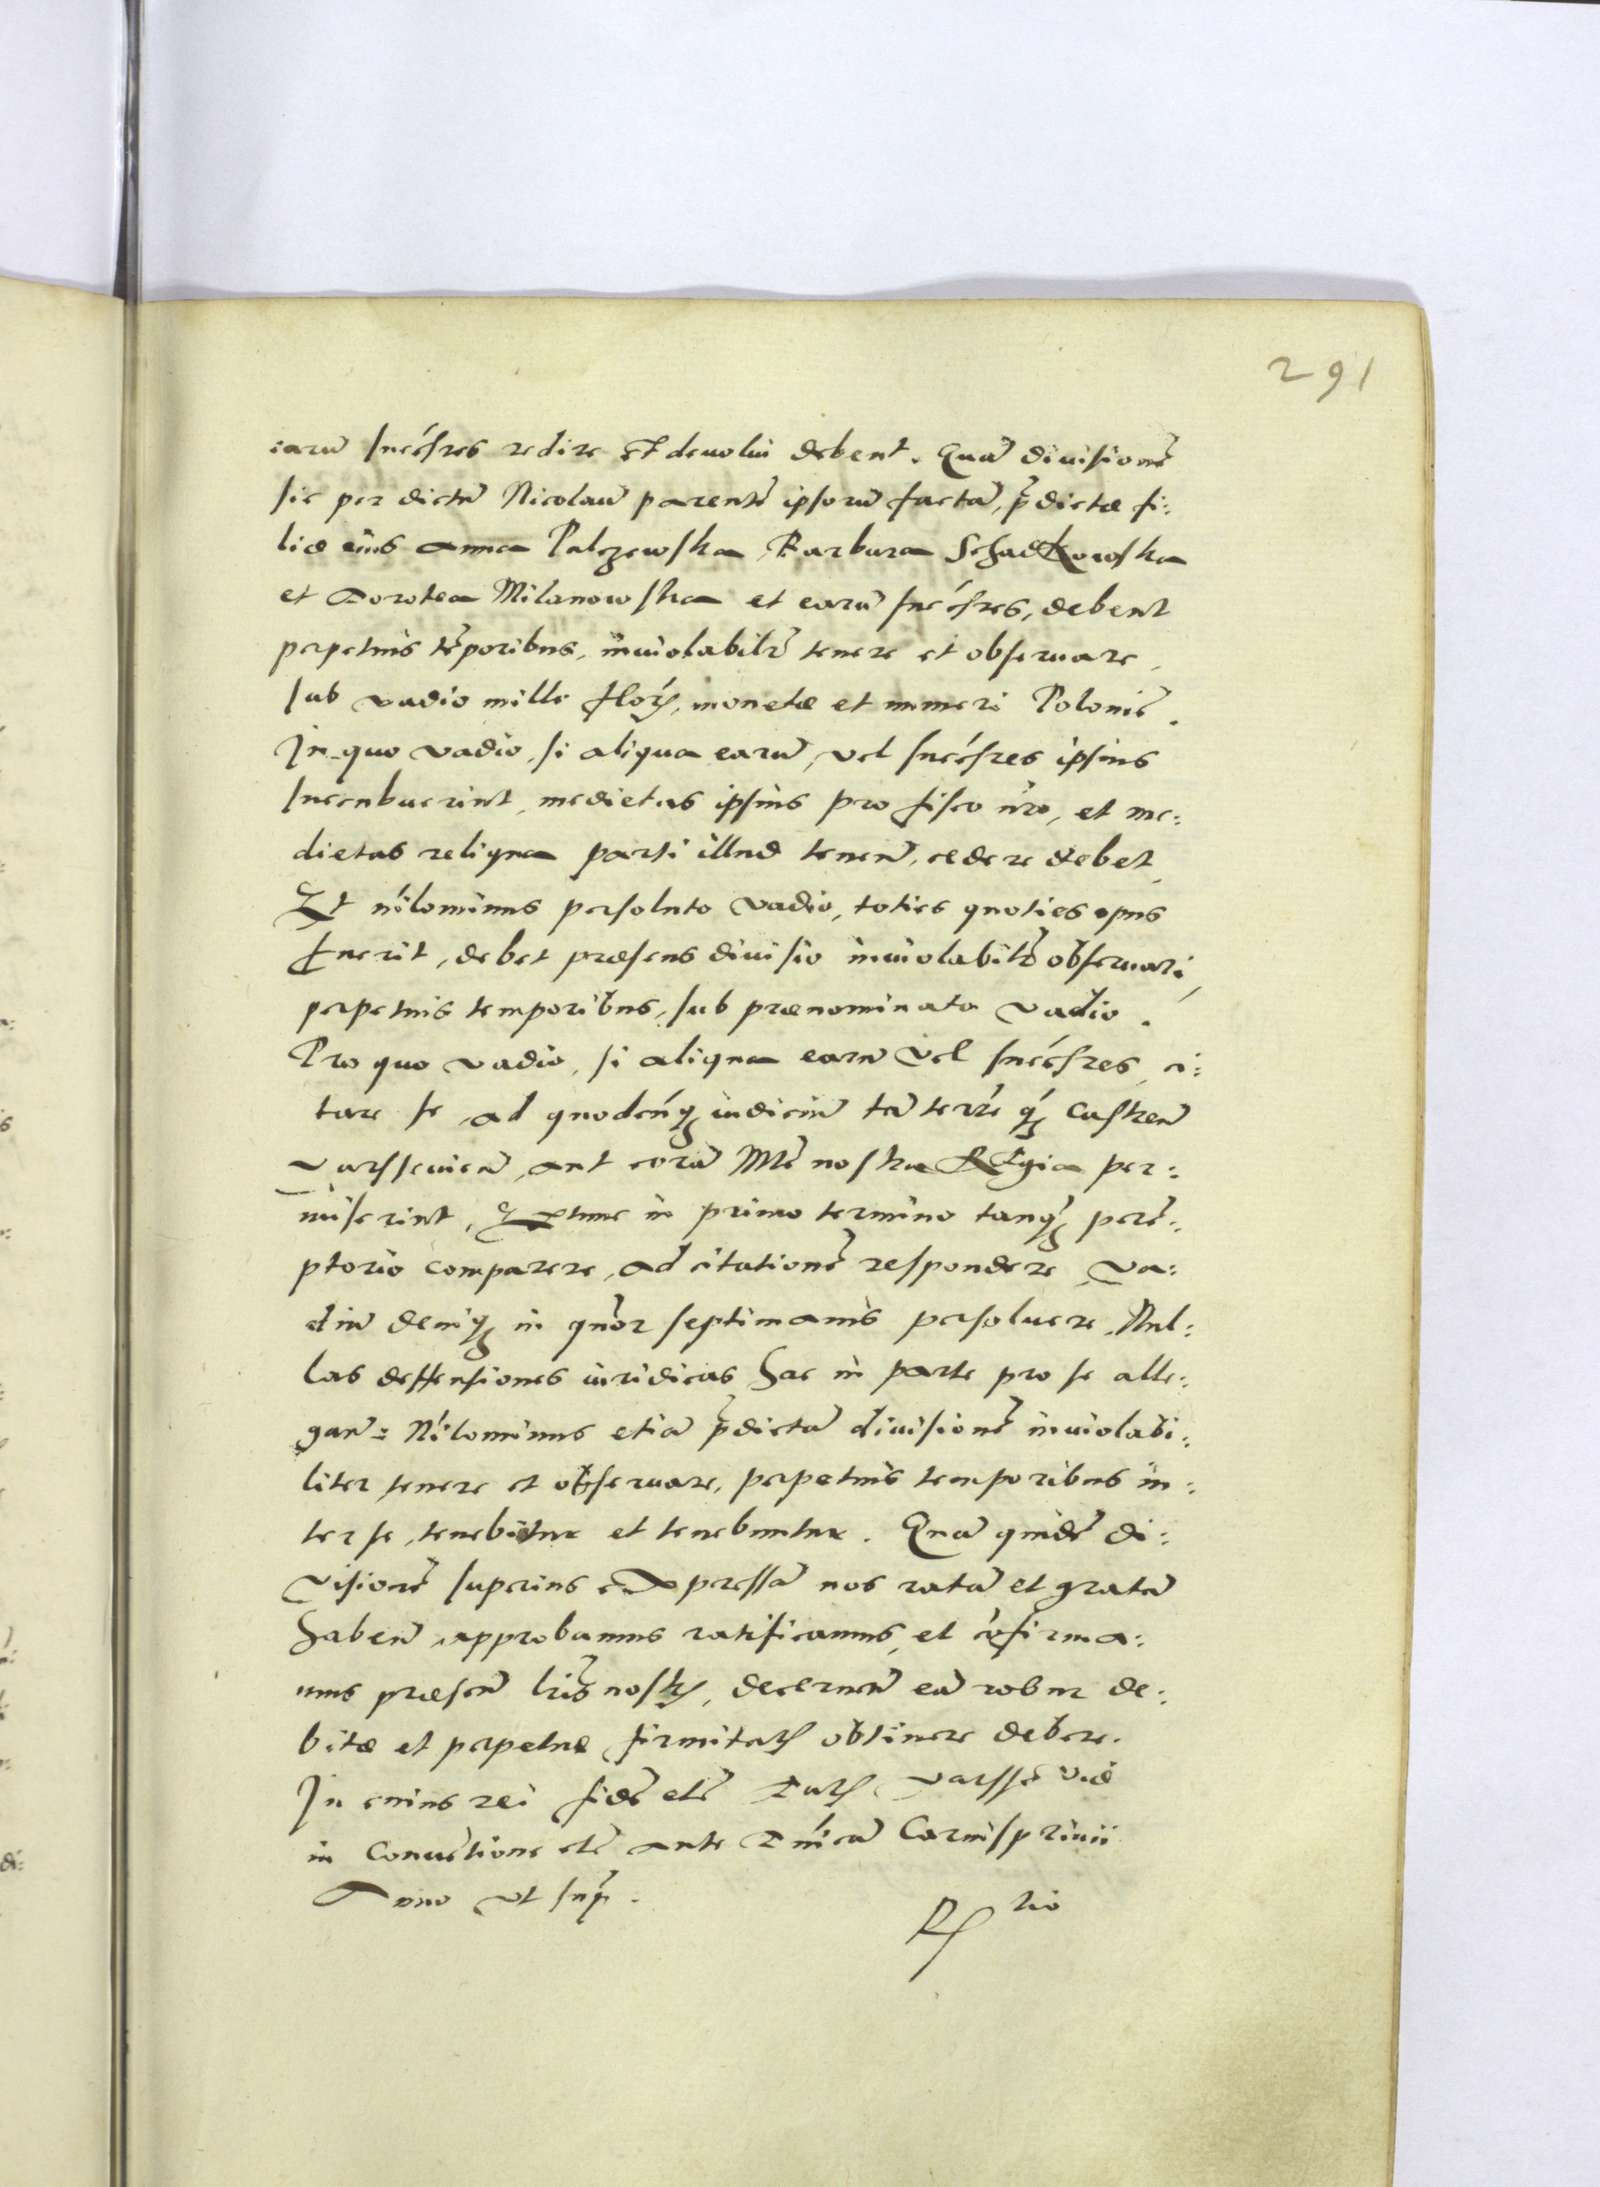 291
earũ succẽsres redire et deuolui debent. Quã diuisionẽ
sic per dictũ Nicolaũ parentẽ ipsorũ factã, p̃dictæ fi:
liæ eius Anna Palczewska Barbara Schadkowska
et Dorotea Milanowska et earũ succẽsres, debent
perpetuis tẽporibus, inuiolabilr̃ tenere et obseruare,
sub vadio mille floꝝ, monetæ et numeri Poloniẽ.
In quo vadio, si aliqua earũ, vel succẽsres ipsius
succubuerint, medietas ipsius pro fisco nr̃o, et me:
dietas reliqua parti illud tenen̄, cedere debet,
Et nĩlominus persoluto vadio, toties quoties opus
fuerit, debet præsens diuisio inuiolabilr̃ obseruari,
perpetuis temporibus, sub prænominato vadio.
Pro quo vadio, si aliqua earũ vel succẽsres, ci:
tare se ad quodcũqꝫ iudiciũ tã terr̃e qꝫ castren̄
Varsseuien̄, aut corã Mte nostra Regia per:
miserint, Extunc in primo termino tanqꝫ perẽ:
ptorio comparere, ad citationẽ respondere, va:
diũ deniqꝫ in quõr septimanis persoluere, Nul:
las deffensiones iuridicas hac in parte pro se alle:
gan̄: Nĩlominus etiã p̃dictã diuisionẽ inuiolabi:
liter tenere et obseruare, perpetuis temporibus in:
ter se, tenebitur et tenebuntur. Quã quidẽ di:
visionẽ superius expressã nos ratã et gratã
haben̄ approbamus ratificamus, et cõfirma:
mus præsen̄ lr̃is nostꝝ, decernen̄ eã robur de:
bitæ et perpetuæ firmitatꝭ obtinere debere.
In cuius rei fidẽ etc̃ Datꝭ Varssẽviæ
in Conuẽtione etc̃ ante Dñicã Carnispriuii
Anno vt sup̃.
Rꝭtio